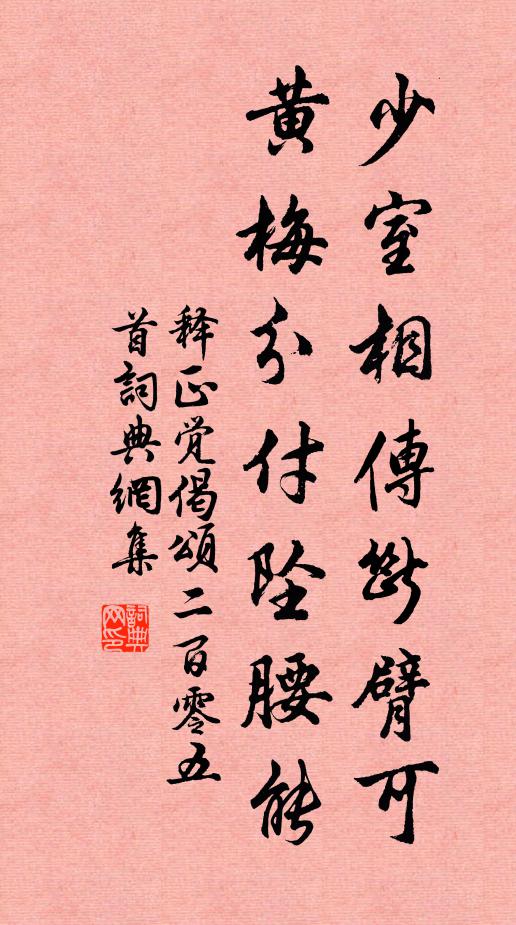 少室相傳斷臂可
黃梅分付坠腰能
释正觉偈頌二百零五
首詞典網集
詞典网印